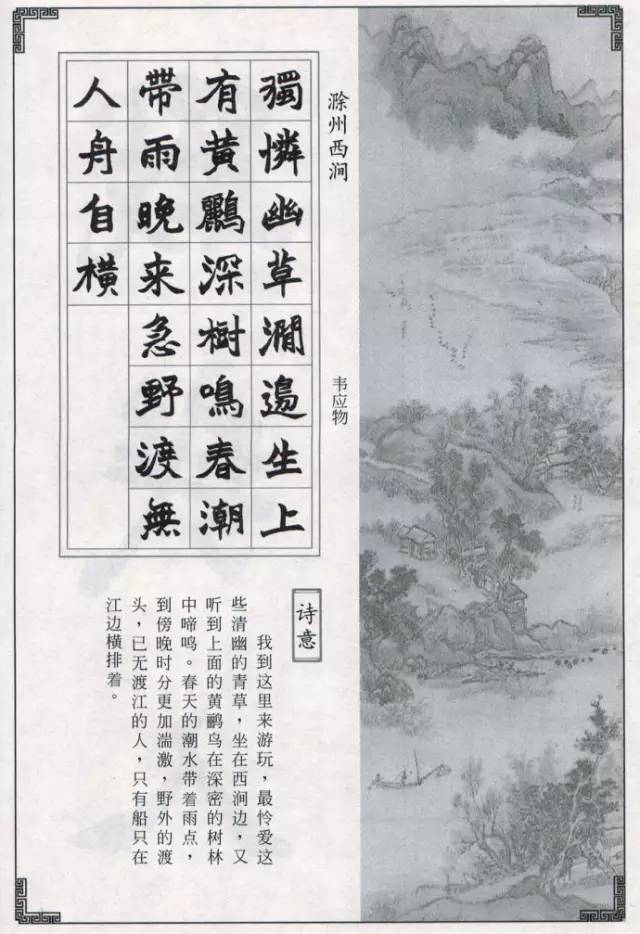 滁州西涧
韦应物
獨憐幽草澗邊生上
有黃鸝深樹鳴春潮
帶雨晚来急野渡無
人舟自橫
诗意
我到这里来游玩，最怜爱这
些清幽的青草，坐在西涧边，又
听到上面的黄鹂鸟在深密的树林
中啼鸣。春天的潮水带着雨点，
到傍晚时分更加湍激，野外的渡
头，已无渡江的人，只有船只在
江边横排着。